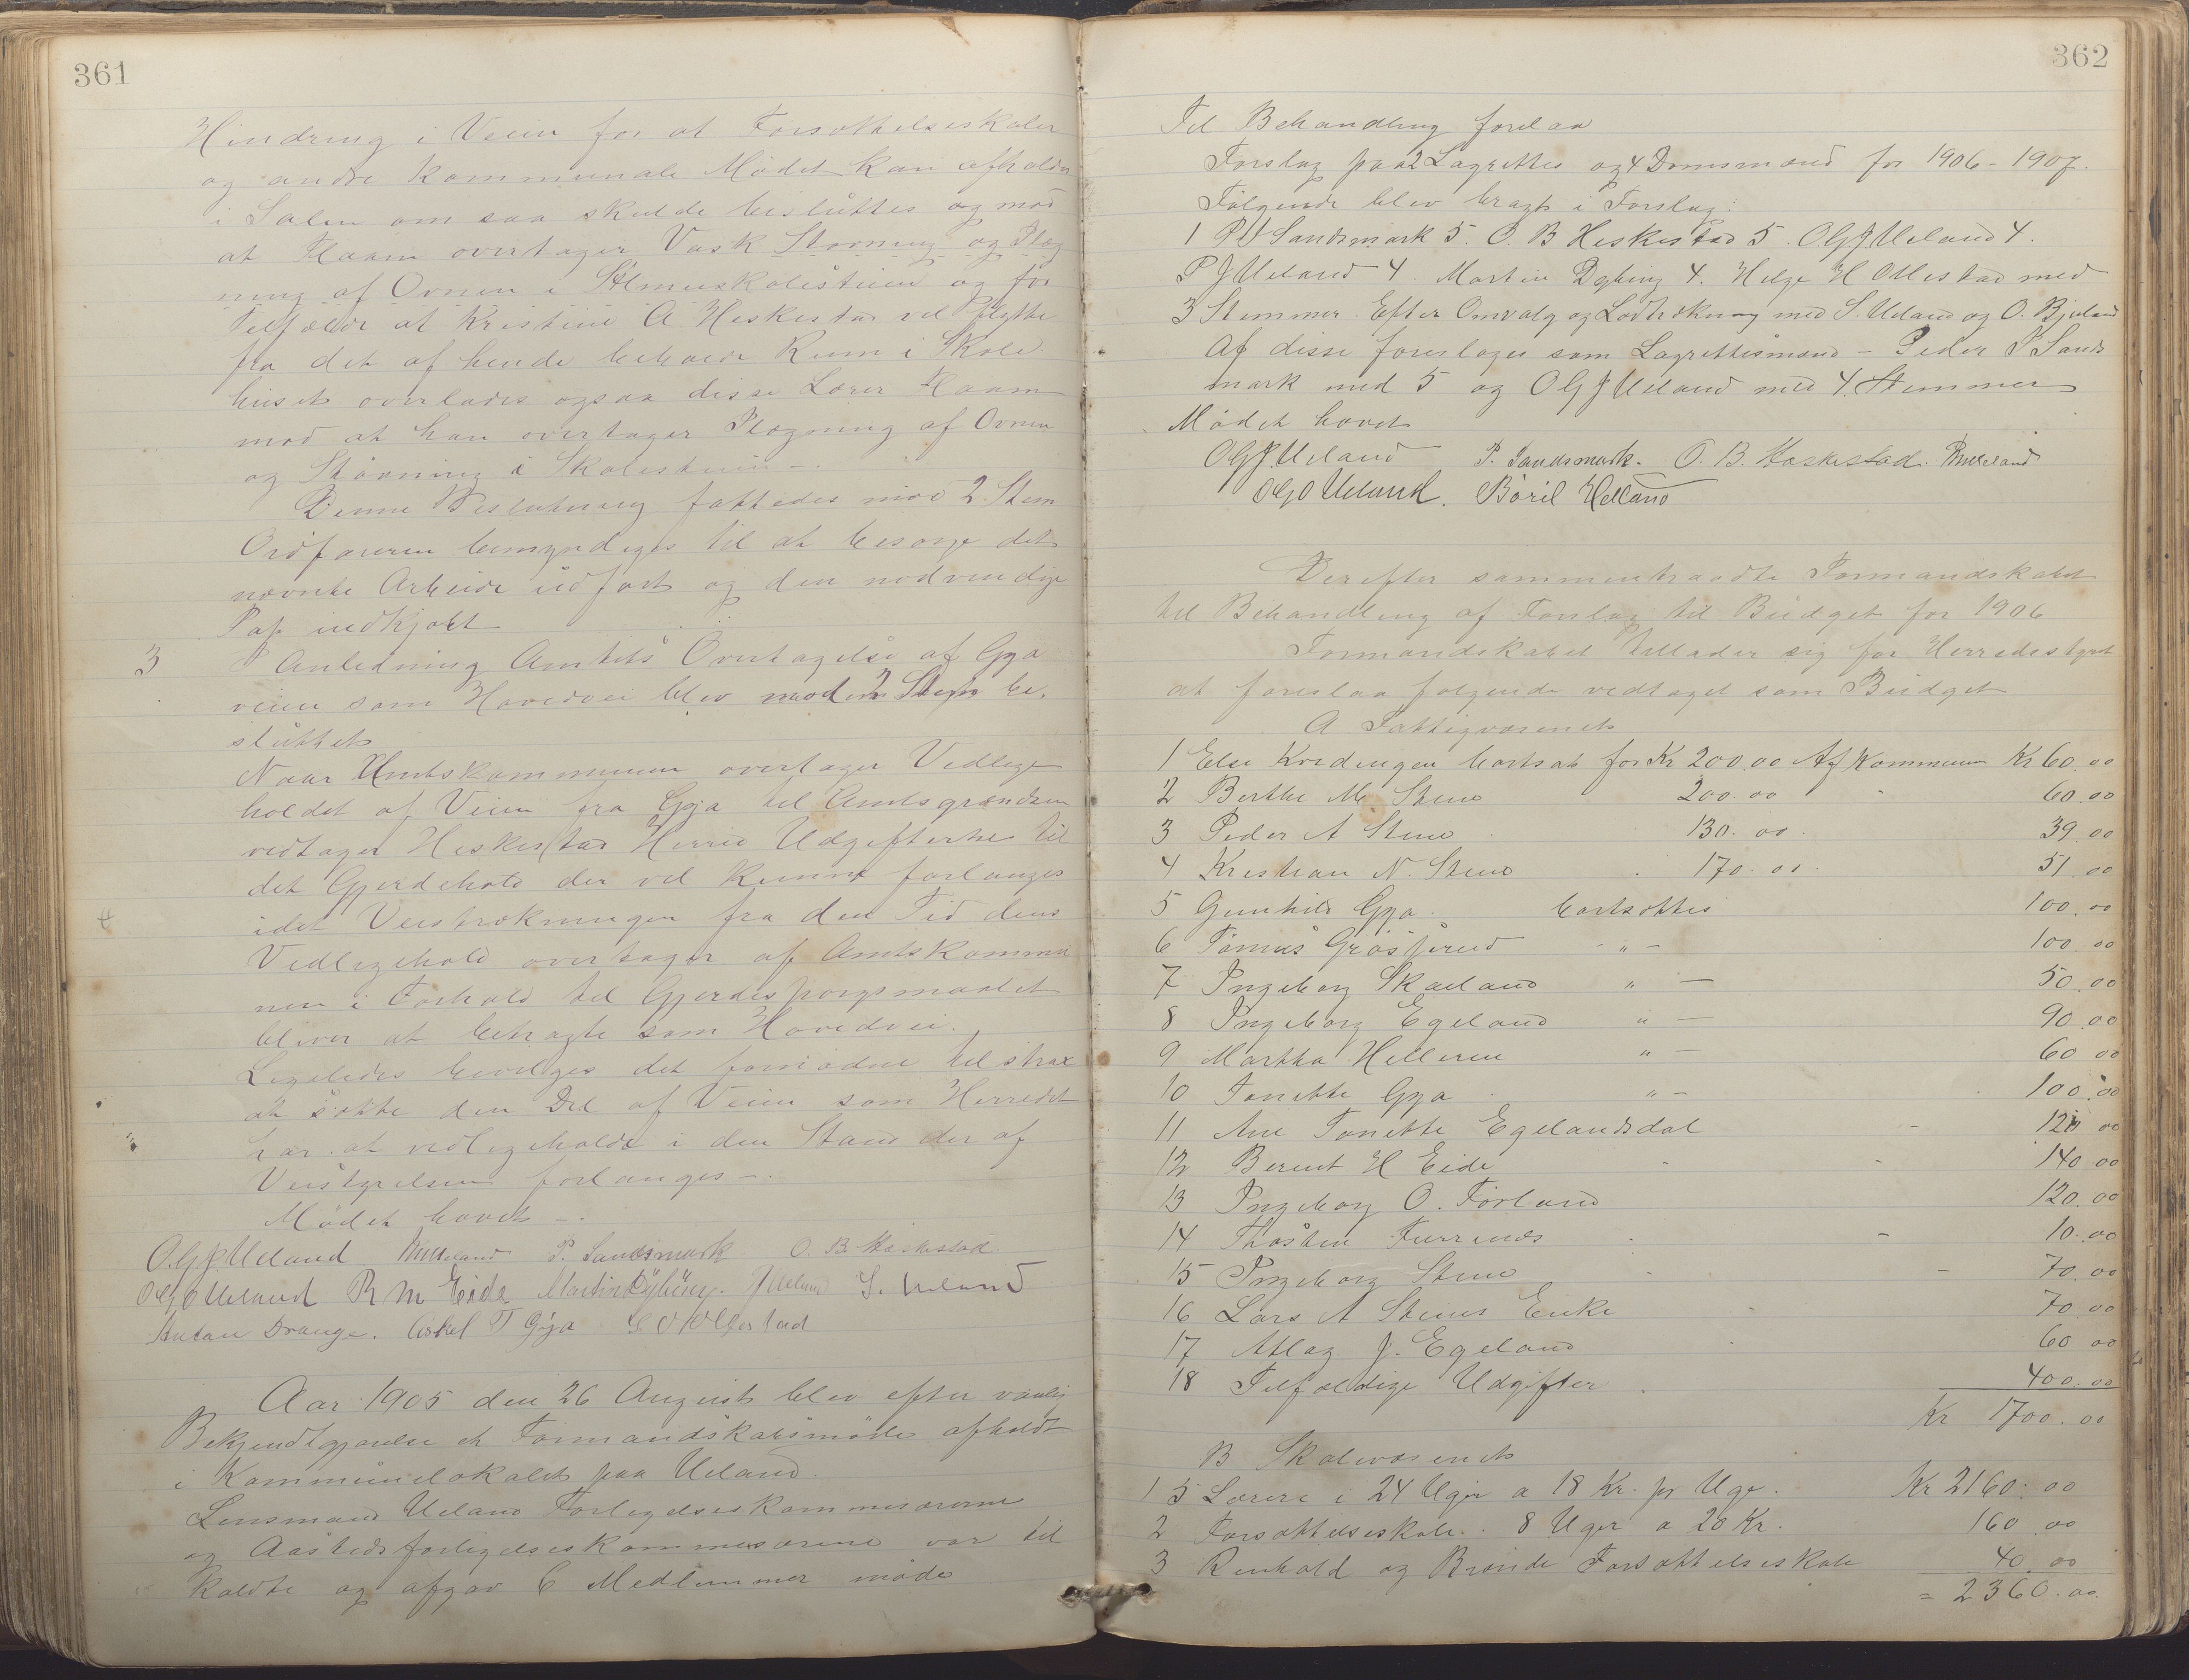 361
Hindring i Veien for at Forsættelseskoler
og andre kommunale Mødet kan afholdes
i Salen om saa skulde besluttes og mod
at Haam overtager Vask Støvning og Plæg
ning af Ovnen i Almueskolestuen og for
Telfælde at Kristine A Heskestad vil flytte
fra det af hende beboede Rum i Skole
huset overlades ogsaa disse Lærer Haam
mod at han overtager Plægning af Ovnen
og Støvning i Skolestuen -.
Denne Beslutning fattedes mod 2 Stem
Ordføreren bemyndiges til at besørge det
nævnte Arbeide udført og den nødvendige
Pap indkjøbt
3 I Anledning Amtets Overtagelse af Gya
veien som Hovedvei blev mod en Stem be-
sluttet
Naar Amtskommunen overtager Vedlige
holdet af Veien fra Gyja til Amtsgrændsen
vedtager Heskestad Herred Udgifterne til
det Gjerdehold der vil kunne forlanges
idet Veistrækningen fra den Tid dens
Vedligehold overtages af Amtskommu
nen i Forhold til Gjerdespørgsmaalet
bliver at betragte som Hovedvei.
Ligeledes bevilges det fornødne til strax
at sætte den Del af Veien som Herredet
har at vedligeholde i den Stand der af
Veistyrelsen forlanges -.
Mødet hævet -.
O.G.J. Ueland P. Sandsmark O. B. Heskestad.
O G O Ueland R M Eide Martin Dybing. J Ueland S. Ueland
Antan Drange. Askel T Gya
Aar 1905 den 26 August blev efter vanlig
Bekjendtgjørelse et Formandskabsmøde afholdt
i Kommunelokalet paa Ueland.
Lensmand Ueland Forligelseskommisærerne
og Aastedsforligelseskommisærene var til
kaldte og afgav 6 Medlemmer møde
362
Til Behandling forelaa
Forslag paa 2 Lagrettes og 4 Domsmænd for 1906-1907.
Følgende blev bragt i Forslag:
1 P P Sandsmark 5. O. B Heskestad 5. O G J Ueland 4.
P J Ueland 4. Martin Dybing 4. Helge H Ollestad med
3 Stemmer. Efter Omvalg og Lodtrækning med S. Ueland og O. Bjuland
Af disse foreslages som Lagrettesmænd - Peder P Sands
mark med 5 og O G J Ueland med 4. Stemmer
Mødet hævet
O G J. Ueland P. Sandsmark. O. B. Heskestad.
O G O Ueland. Böril Helland
Derefter sammentraadte Formandskabet
til Behandling af Forslag til Budget for 1906
Formandskabet tillader sig for Herredstyret
at foreslaa følgende vedtaget som Budget
A Fattigvæsenet
1 Else Kvedingen bortsat for Kr 200.00 Af Kommunen Kr 60.00
2 Berthe M. Stene 200.00 60.00
3 Peder A Stene 130.00. 39.00
4 Kristian N. Stene 170.00. 51.00
5 Gunhild Gya. bortsættes 100.00
6 Tønnes Grøsfjeld - " - 100.00
7 Ingeborg Skæland " - 50.00
8 Ingeborg Egeland " - 90.00
9 Martha Helleren " - 60 00
10 Tonette Gya " - 100.00
11 Ane Tonette Egelandsdal 120 00
12 Berent H Eide 140.00
13 Ingeborg O. Førland 120.00
14 Thosten Furrenes 10.00
15 Ingeborg Stene 70.00
16 Lars A Stenes Enke 70.00
17 Atlag J. Egeland 60 00
18 Tilfældige Udgifter 400.00
Kr 1700.00
B Skolevæsenet
1 5 Lærere i 24 Uger a 18 Kr. pr Uge. Kr 2160.00
2 Forsættelseskole. 8 Uger a 20 Kr. 160 00
3 Renhold og Brænde Forsættelseskole 40 00
= 2360.00.